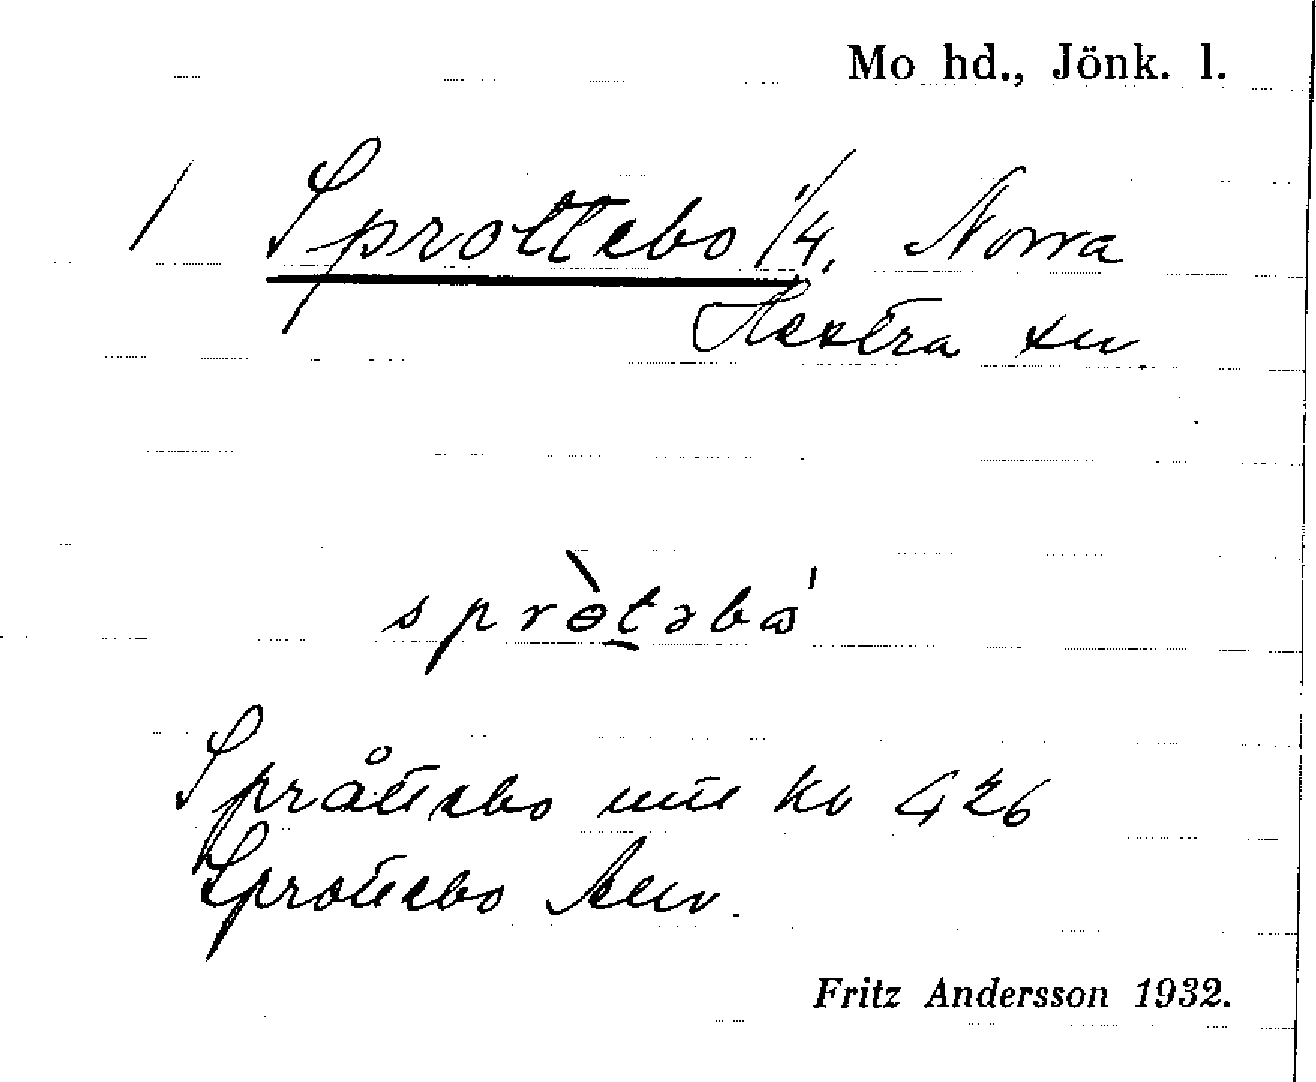 Mo hd., Jönk. l.
/ Sprottebo 1/4, Norra
Hestra sn
sprɵ̀təbω'
Språttebo utt kv 426
Sprottebo Aen
Fritz Andersson 1932.